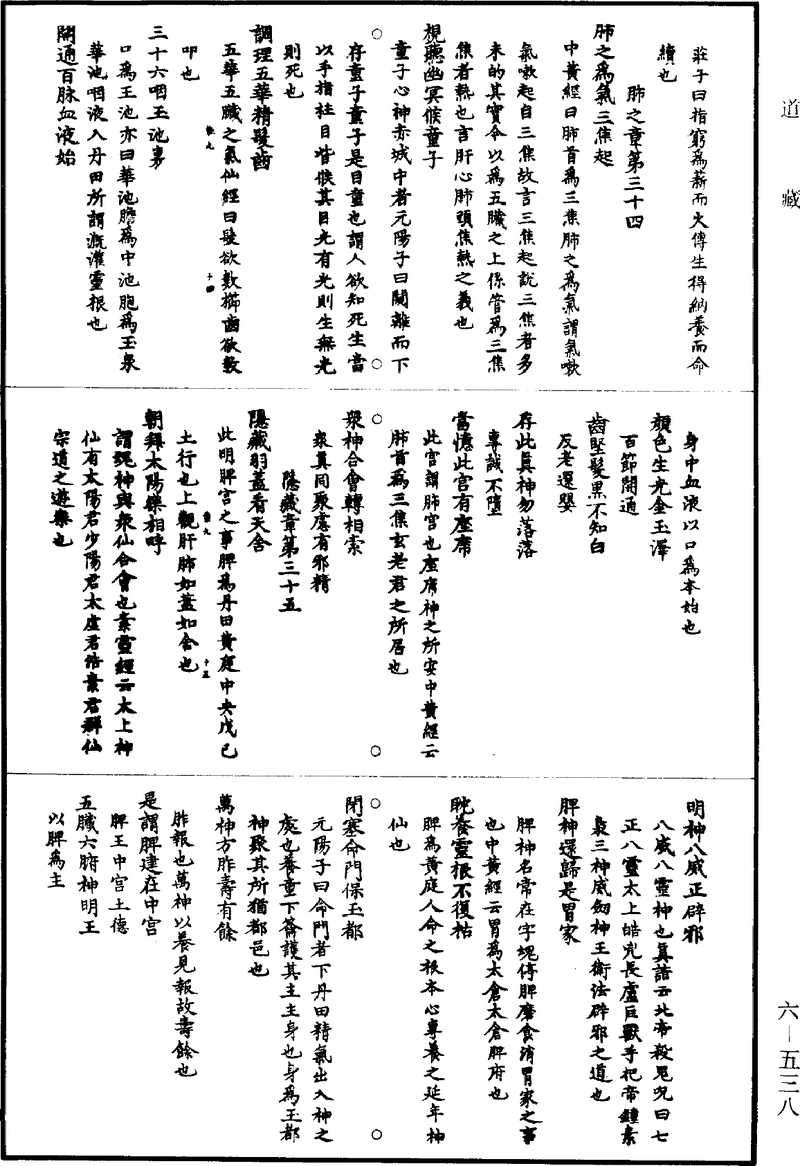 道藏
莊子曰指窮爲薪而火傳生得納養而命
續也
肺之章第三十四
肺之爲氣三焦起
中黃經曰肺首爲三焦肺之爲氣謂氣嗽
氣嗽起自三焦故言三焦起說三焦者多
未的其實今以爲五臟之上係管爲三焦
焦者熱也言肝心肺頭焦熱之義也
視聽幽冥候童子
童子心神赤城中者元陽子曰閉離而下
存童子童子是目童也謂人欲知死生當
以手指拄目眥候其目光有光則生無光
則死也
調理五華精髮齒
五華五臟之氣仙經曰髮欲數櫛齒欲數
叩也
三十六咽玉池裏
口爲玉池亦曰華池膽爲中池胞爲玉泉
華池咽液入丹田所謂溉灌靈根也
開通百脉血液始
身中血液以口爲本始也
顏色生光金玉澤
百節開通
齒堅髮黑不知白
反老還嬰
存此眞神勿落落
專誠不墮
當憶此宮有座席
此宮謂肺宮也座席神之所安中黃經云
肺首爲三焦玄老君之所居也
衆神合會轉相索
衆眞同聚慮有邪精
隱藏章第三十五
隱藏羽蓋看天舍
此明脾宮之事脾爲丹田黃庭中央戊己
土行也上觀肝肺如蓋如舍也
朝拜太陽樂相呼
謂魂神與衆仙合會也素靈經云太上神
仙有太陽君少陽君太虛君浩素君群仙
宗道之遊樂也
明神八威正辟邪
八威八靈神也眞誥云北帝殺鬼呪曰七
正八靈太上皓兇長盧巨獸手把帝鐘素
梟三神威劒神王衛法辟邪之道也
脾神還歸是胃家
脾神名常在字魂停脾磨食消胃家之事
也中黃經云胃爲太倉太倉脾府也
耽養靈根不復枯
脾爲黃庭人命之根本心專養之延年神
仙也
閉塞命門保玉都
元陽子曰命門者下丹田精氣出入神之
處也養童下籥護其主主身也身爲玉都
神聚其所猶都邑也
萬神方胙壽有餘
胙報也萬神以養見報故壽餘也
是謂脾建在中宮
脾王中宮土德
五臟六腑神明王
以脾爲主
六－五三八